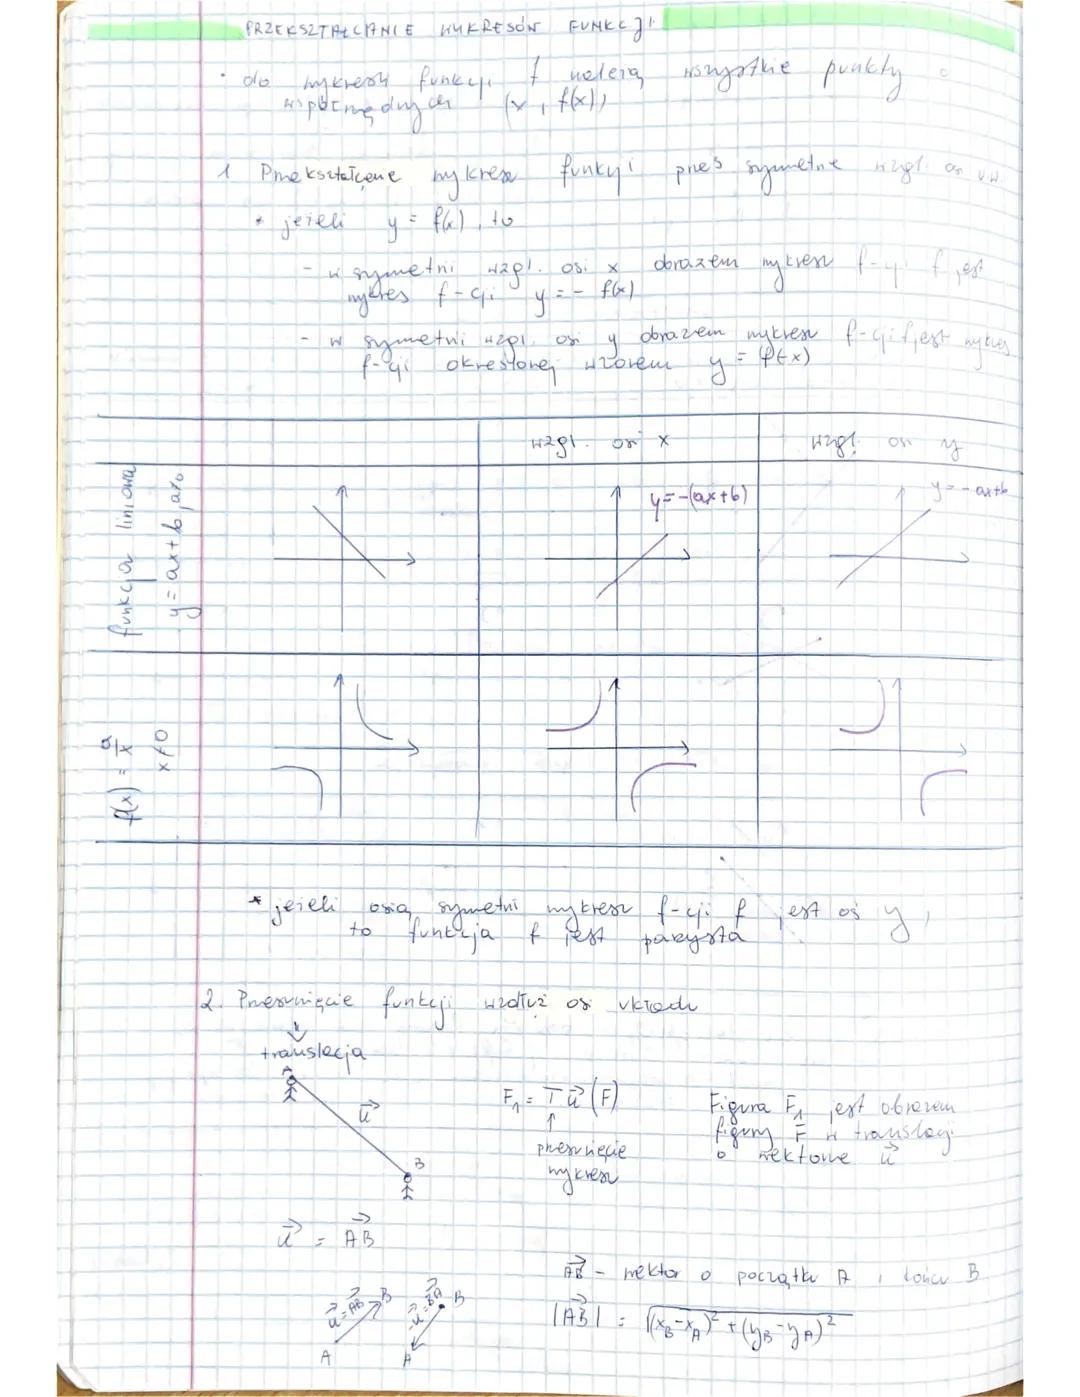 PRZEKSZTAŁCANIE WYKRESÓW FUNKCJI
• do wykresu funkcji f należą wszystkie punkty o
współrzędnych (x, f(x))
1 Przekształcenie wykresu funkcji przez symetrię wzgl. osi ukł.
* jeżeli y = f(x), to
- w symetrii wzgl. osi x obrazem wykresu f-cji f jest
wykres f-cji y = - f(x)
- w symetrii wzgl. osi y obrazem wykresu f-cji f jest wykres
f-cji określonej wzorem y = f(-x)
wzgl. osi x
wzgl. osi y
funkcja liniowa
y = ax + b, a≠0
y = -(ax+b)
y = -ax+b
f(x) = a/x
x≠0
* jeżeli osią symetrii wykresu f-cji f jest oś y,
to funkcja f jest parzysta
2. Przesunięcie funkcji wzdłuż osi układu
translacja
A
u→
B
F₁ = T u→ (F)
↑
przesunięcie
wykresu
Figura F₁ jest obrazem
figury F w translacji
o wektorze u→
u→ = AB→
AB→ - wektor o początku A i końcu B
u→ = AB→ B
-u→ = BA→ B
A
A
|AB→| = √(x_B-x_A)² + (y_B-y_A)²